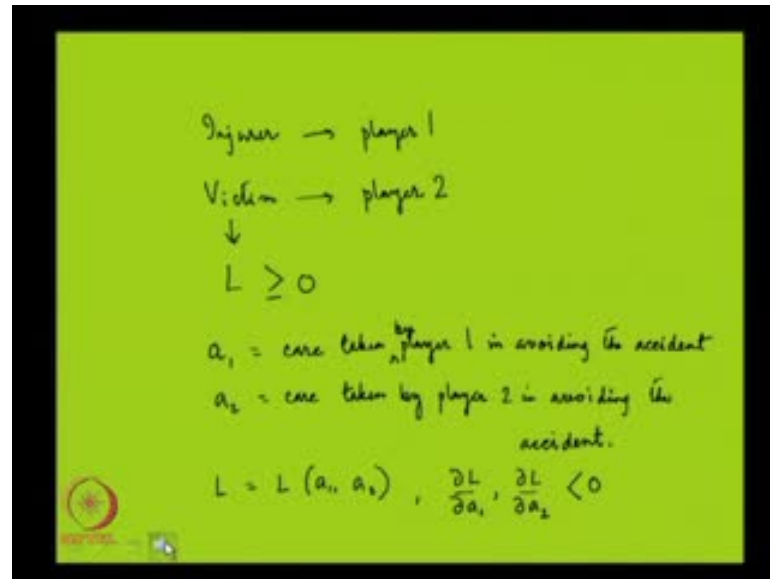 Injurer → player 1
Victim → player 2
↓
L ≥ 0
a₁ = care taken by player 1 in avoiding the accident
a₂ = care taken by player 2 in avoiding the
accident.
L = L (a₁, a₂) , ∂L/∂a₁, ∂L/∂a₂ < 0
NPTEL